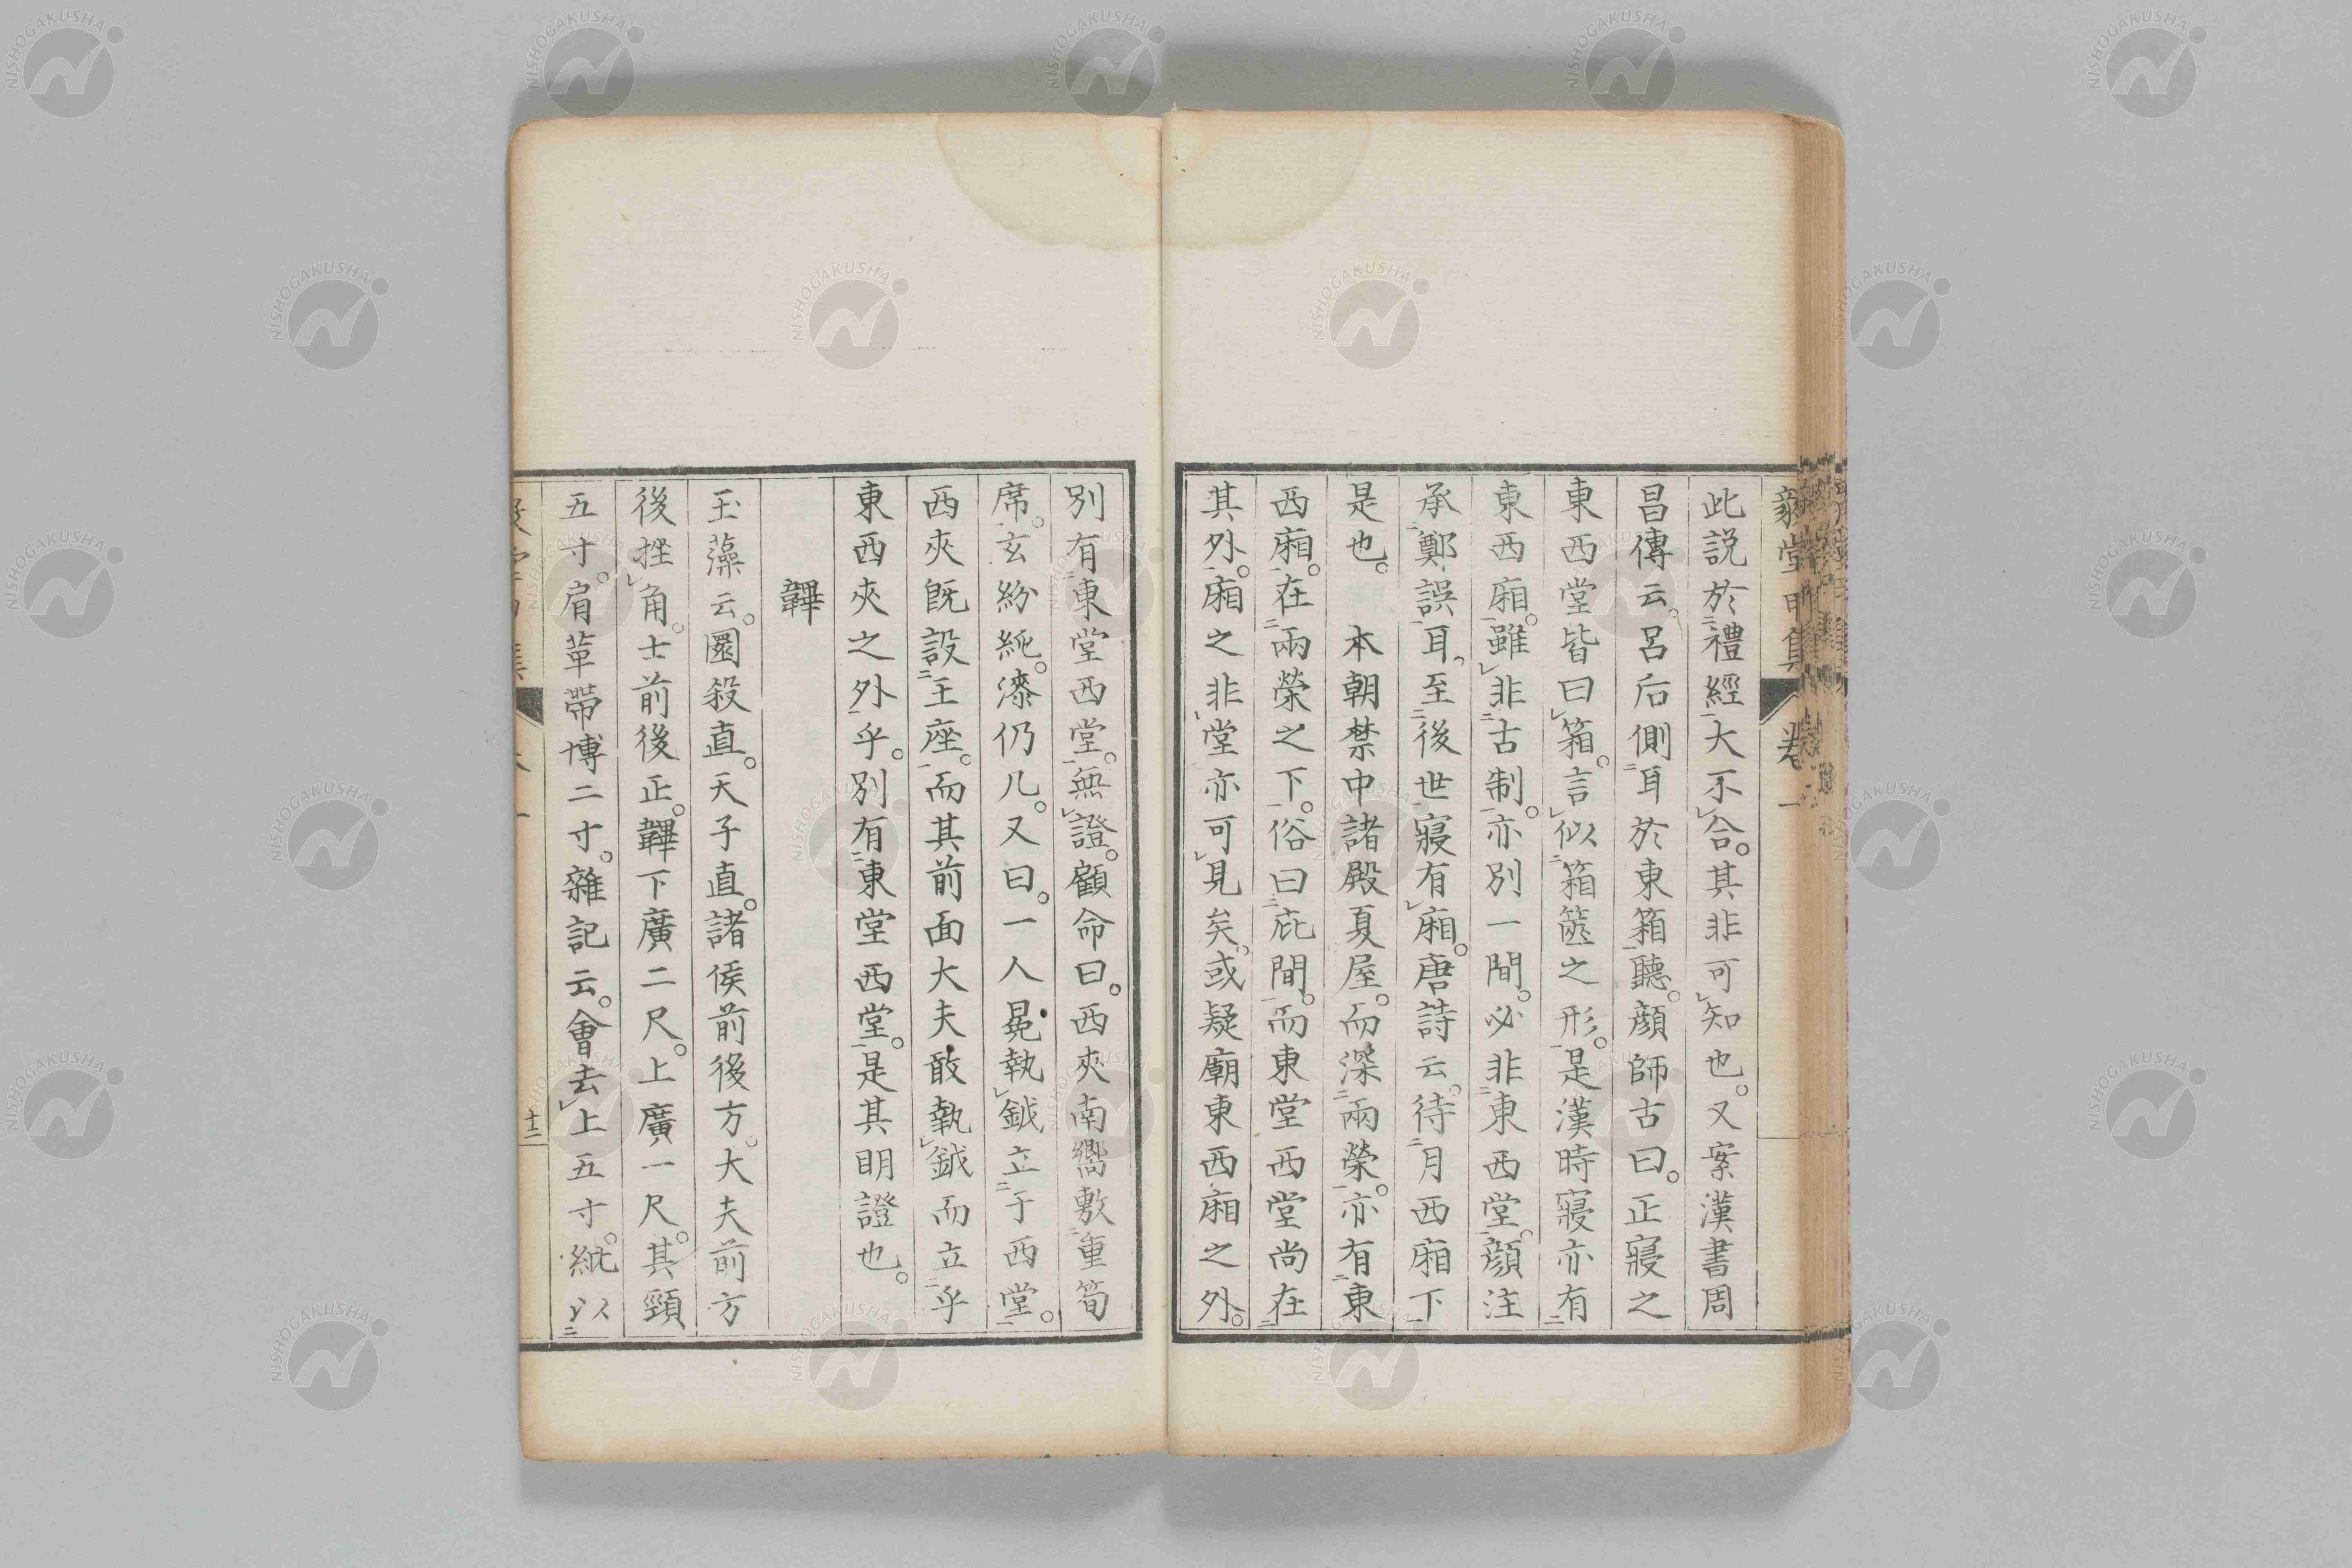 此説於禮經大不合。其非可知也。又案漢書周
昌傳云。呂后側耳於東箱聽。顔師古曰。正寢之
東西堂皆曰箱。言似箱篋之形。是漢時寢亦有
東西廂。雖非古制。亦別一間。必非東西堂。顔注
承鄭誤耳。至後世寢有廂。唐詩云。待月西廂下
是也。 本朝禁中諸殿夏屋。而深兩榮。亦有東
西廂。在兩榮之下。俗曰庇間。而東堂西堂尚在
其外。廂之非堂亦可見矣。或疑廟東西廂之外。
別有東堂西堂。無證。顧命曰。西夾南嚮敷重筍
席。玄紛純。漆仍几。又曰。一人冕執鉞立于西堂。
西夾既設王座。而其前面大夫敢執鉞而立乎
東西夾之外乎。別有東堂西堂。是其明證也。
韠
玉藻云。圜殺直。天子直。諸侯前後方。大夫前方
後挫角。士前後正。韠下廣二尺。上廣一尺。其頸
五寸。肩革帶博二寸。雜記云。會去上五寸。紕以
十二
卷一
NISHOGAKUSHA